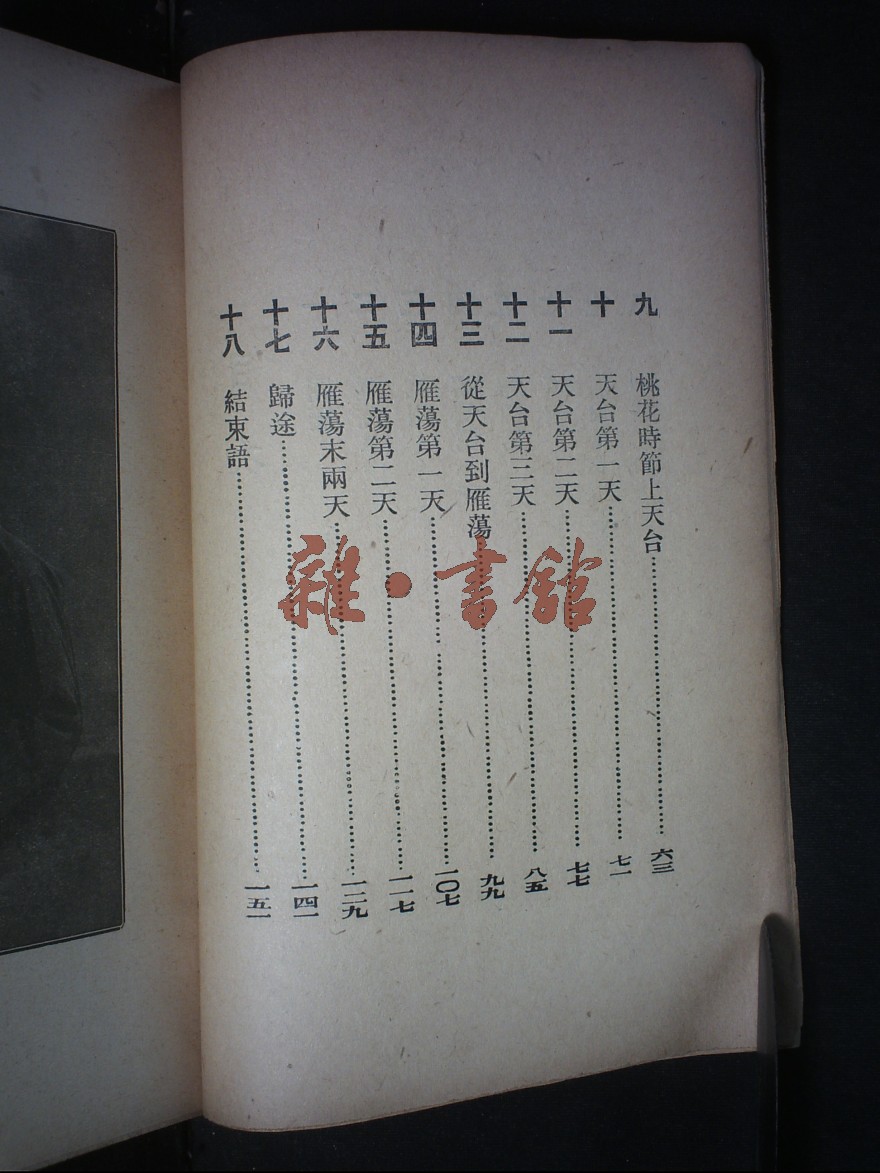 九 桃花時節上天台……六三
十 天台第一天……七一
十一 天台第二天……七七
十二 天台第三天……八五
十三 從天台到雁蕩……九九
十四 雁蕩第一天……一〇七
十五 雁蕩第二天……一一七
十六 雁蕩末兩天……一二九
十七 歸途……一四一
十八 結束語……一五一
雜·書館